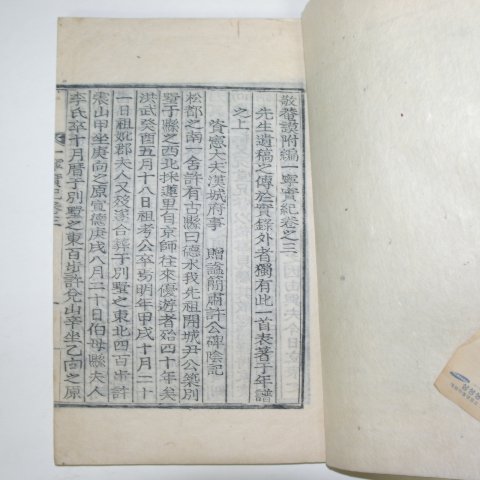 敬菴設附編一寧實紀卷之三
先生遺稿之傳於實錄外者獨有此一首表著于年譜
之上
資憲大夫漢城府事 贈謚簡肅許公碑陰記
松都之南一舍許有古縣曰德水我先祖開城尹公築別
墅于縣之西北採蓮里自京師往來優遊者殆四十年矣
洪武癸酉五月十八日祖考公卒易明年甲戌十月二十
一日祖妣郡夫人又歿遂合葬于別墅之東北四百步許
震山甲坐庚向之原宣德庚戌八月二十日伯母縣夫人
李氏卒十月厝于別墅之東百步許兌山辛坐乙向之原
一寧實紀卷之三